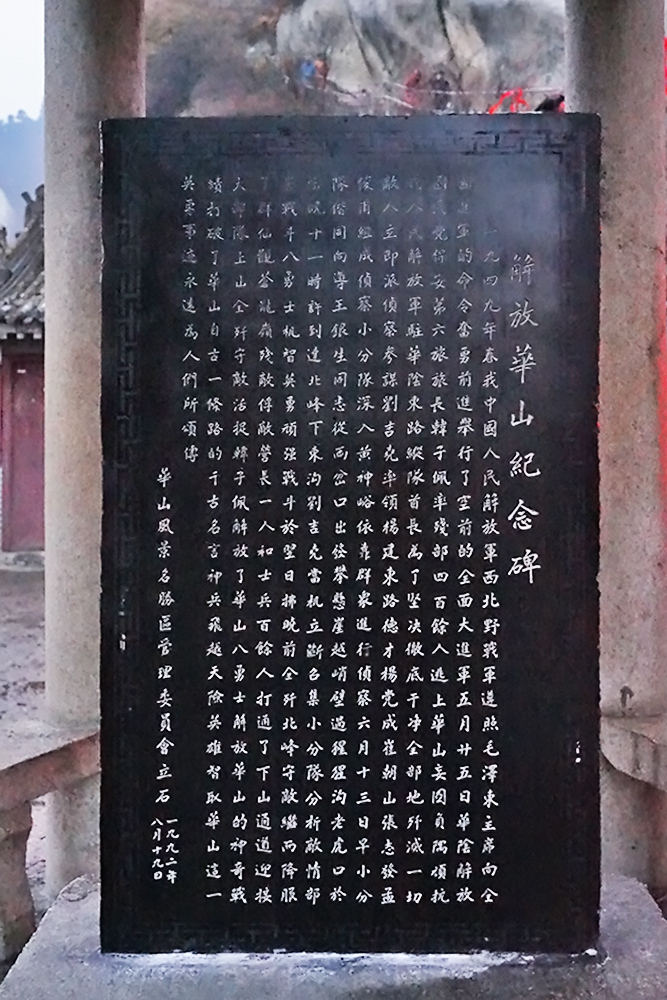 解放華山紀念碑
一九四九年春我中國人民解放軍西北野戰軍遵照毛澤東主席向全
國進軍的命令奮勇前進舉行了空前的全面大進軍五月廿五日華陰解放
國民黨保安第六旅旅長韓子佩率殘部四百餘人逃上華山妄圖負隅頑抗
我人民解放軍駐華陰東路縱隊首長為了堅决徹底干净全部地歼滅一切
敵人立即派偵察參謀劉吉尭率領楊建東路德才楊党成崔朝山張志發孟
俊甫組成偵察小分隊深入黄神峪依靠群衆進行偵察六月十三日早小分
隊偕同向導王銀生同志從两岔口出發攀懸崖越峭壁過猩猩沟老虎口於
晚十一時許到達北峰下東沟劉吉尭當机立斷召集小分隊分析敵情部
戰斗八勇士机智英勇頑强戰斗於翌日拂晚前全歼北峰守敵繼而降服
了群仙觀蒼龍嶺殘敵俘敵營長一人和士兵百餘人打通了下山通道迎接
大部隊上山全歼守敵活捉韓子佩解放了華山八勇士解放華山的神奇戰
績打破了華山自古一條路的千古名言神兵飛越天險英雄智取華山這一
英雄事迹永遠為人們所頌傳
華山風景名勝區管理委員會立石
一九九二年
八月十九日